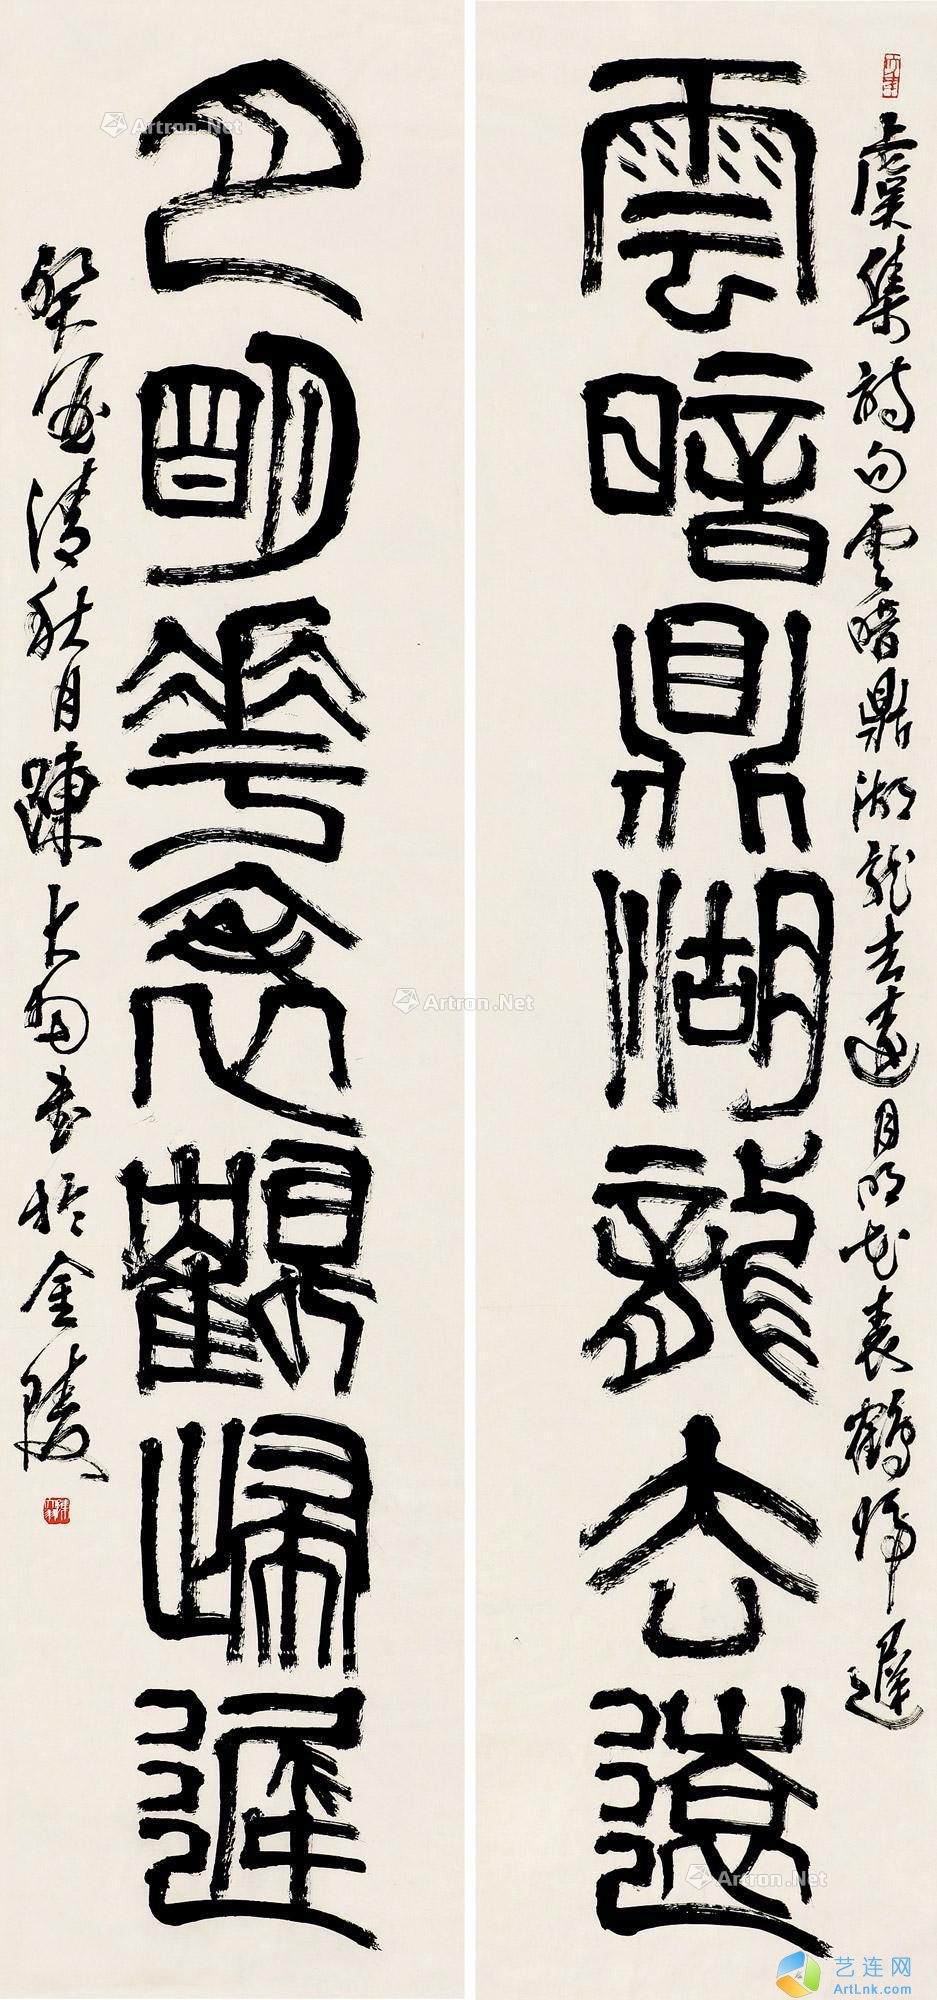 虞集詩句雲暗鼎湖龍去遠月明花表鶴歸遲
雲暗鼎湖龍去遠
月明華表鶴歸遲
癸酉清秋月陳大羽書於金陵
Artron.Net
Artron.Net
Artron.Net
Artron.Net
艺连网
ArtLnk.com